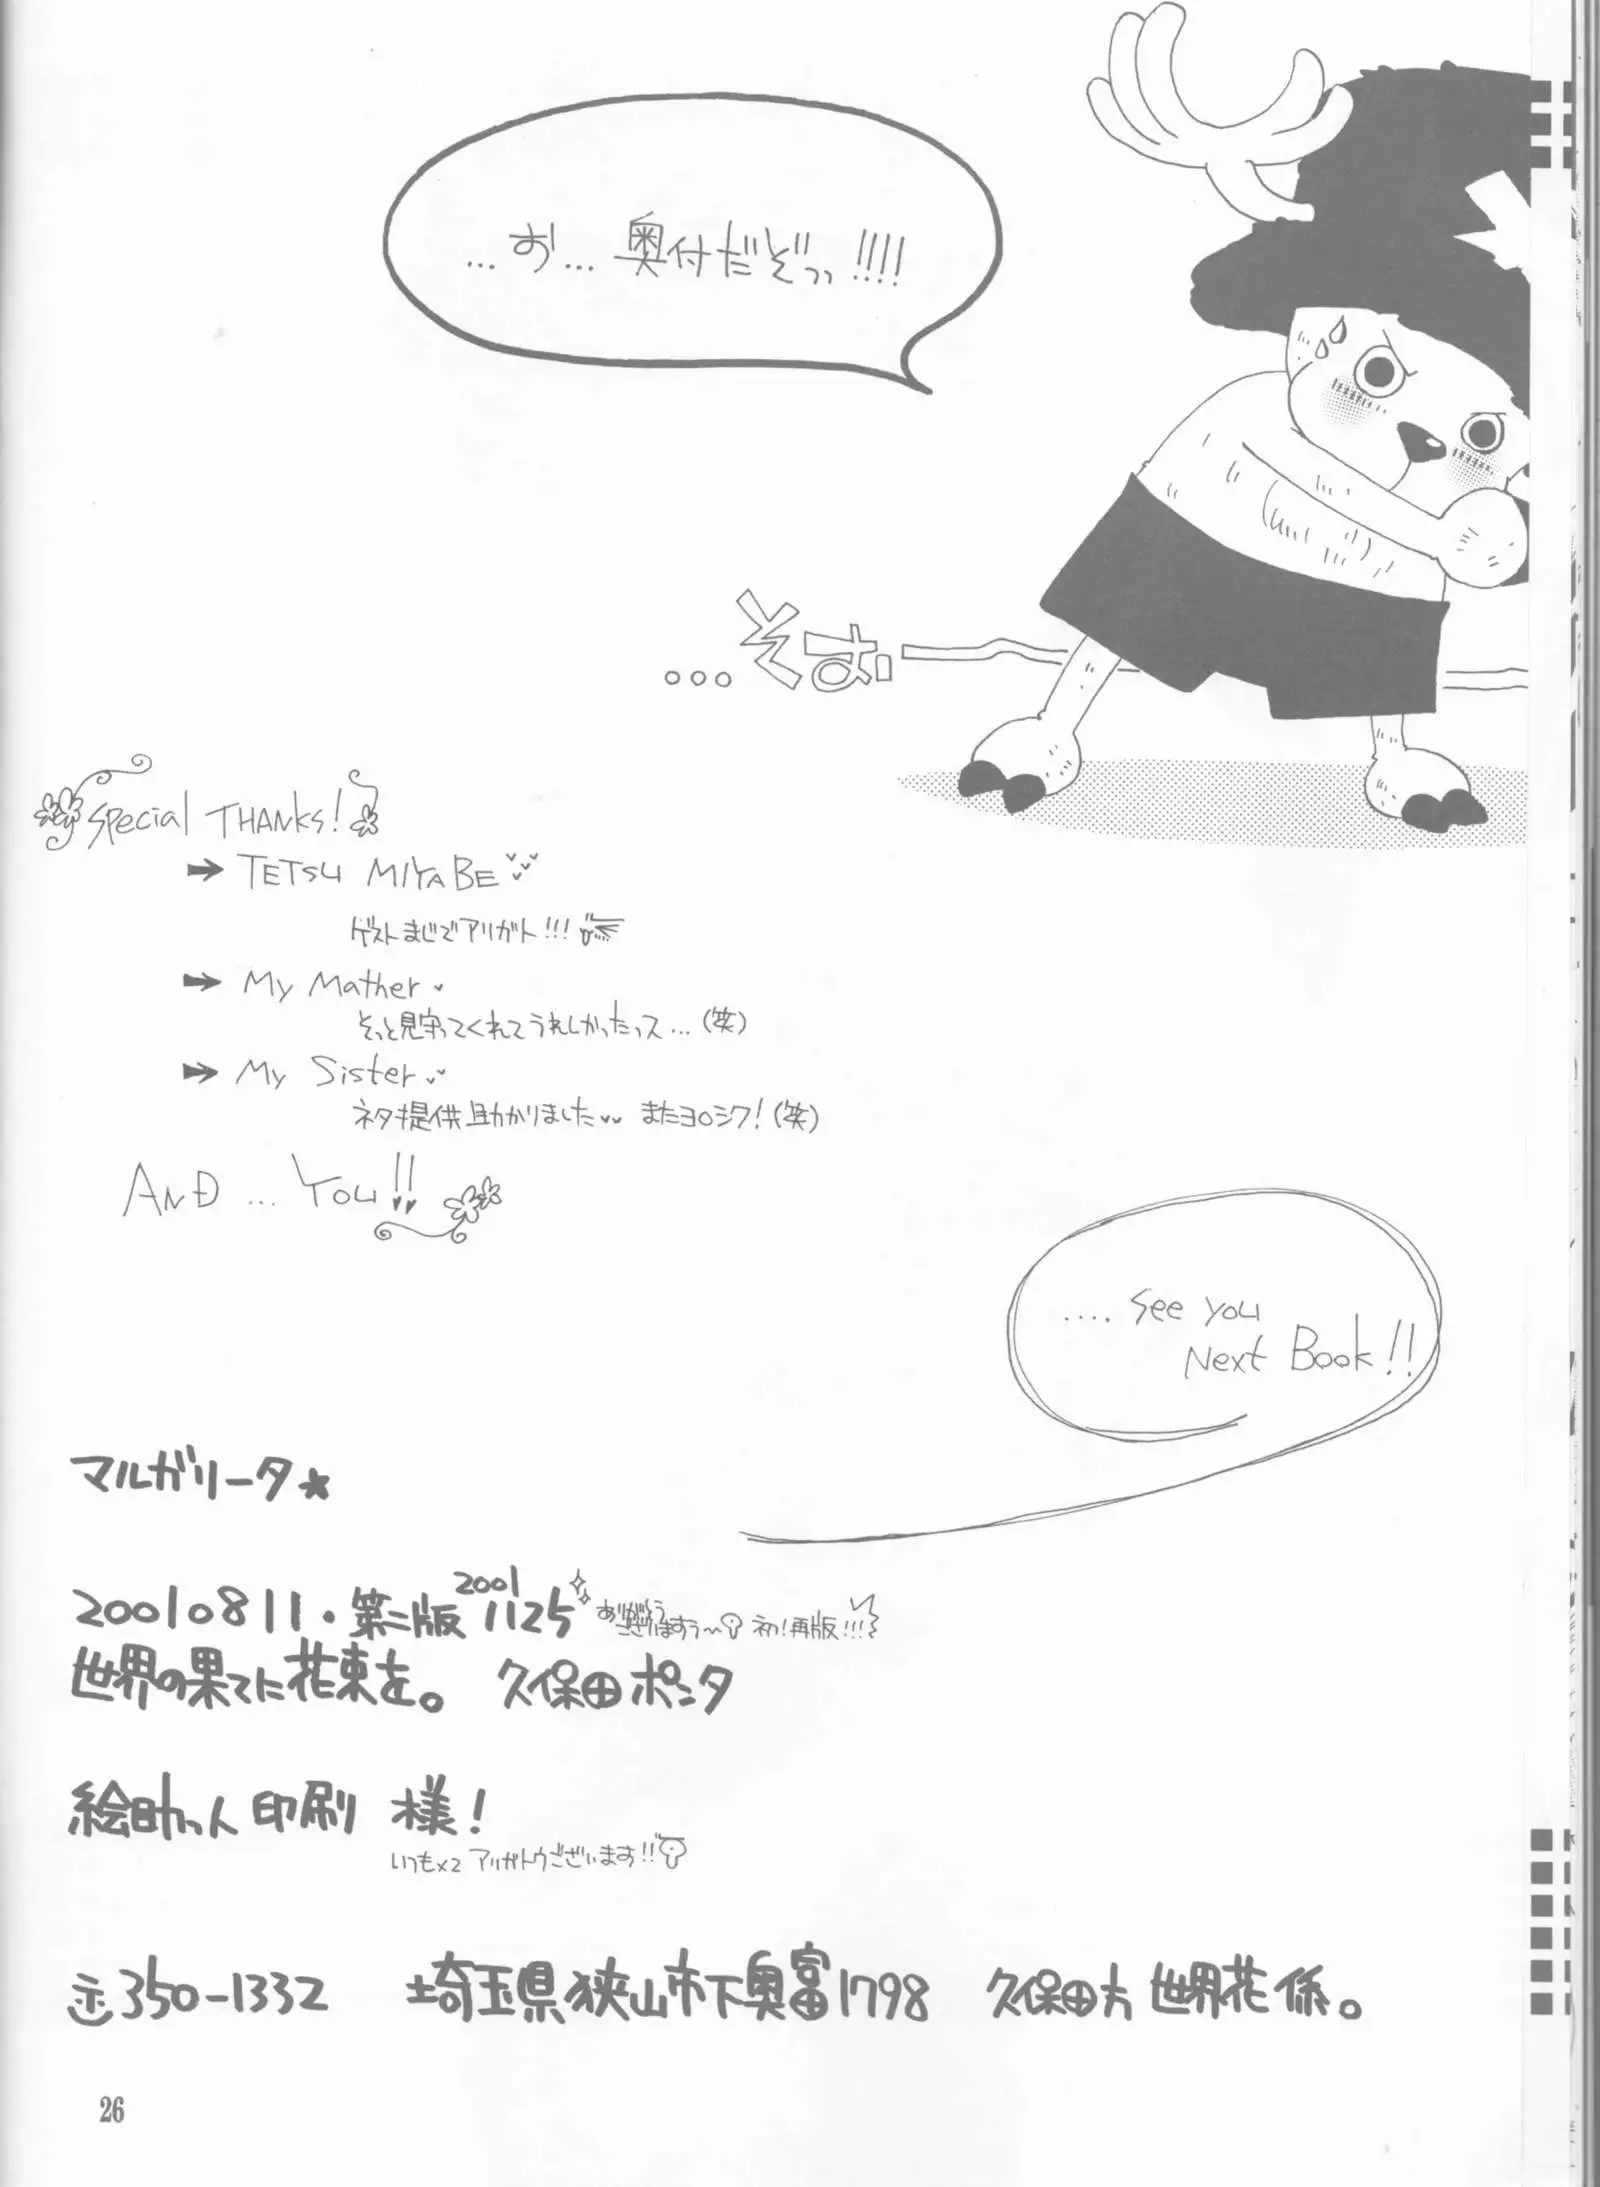 …お…奥付だぞっっ!!!!
...そおー
Special THANKS!
➡ TETSU MIYABE
ゲストまじでアリガト!!!
➡ My Mather
そっと見守ってくれてうれしかったっス…(笑)
➡ My Sister
ネタ提供助かりました またヨロシク!(笑)
AND ... You!!
.... See you
Next Book!!
マルガリータ★
20010811・第二版 2001 1125 ありがとうございますぅ〜 初!再版!!!
世界の果てに花束を。 久保田ポンタ
絵助っ人印刷 様!
いつも×2 アリガトウございます!!
350-1332 埼玉県狭山市下奥富1798 久保田方 世界花係。
26